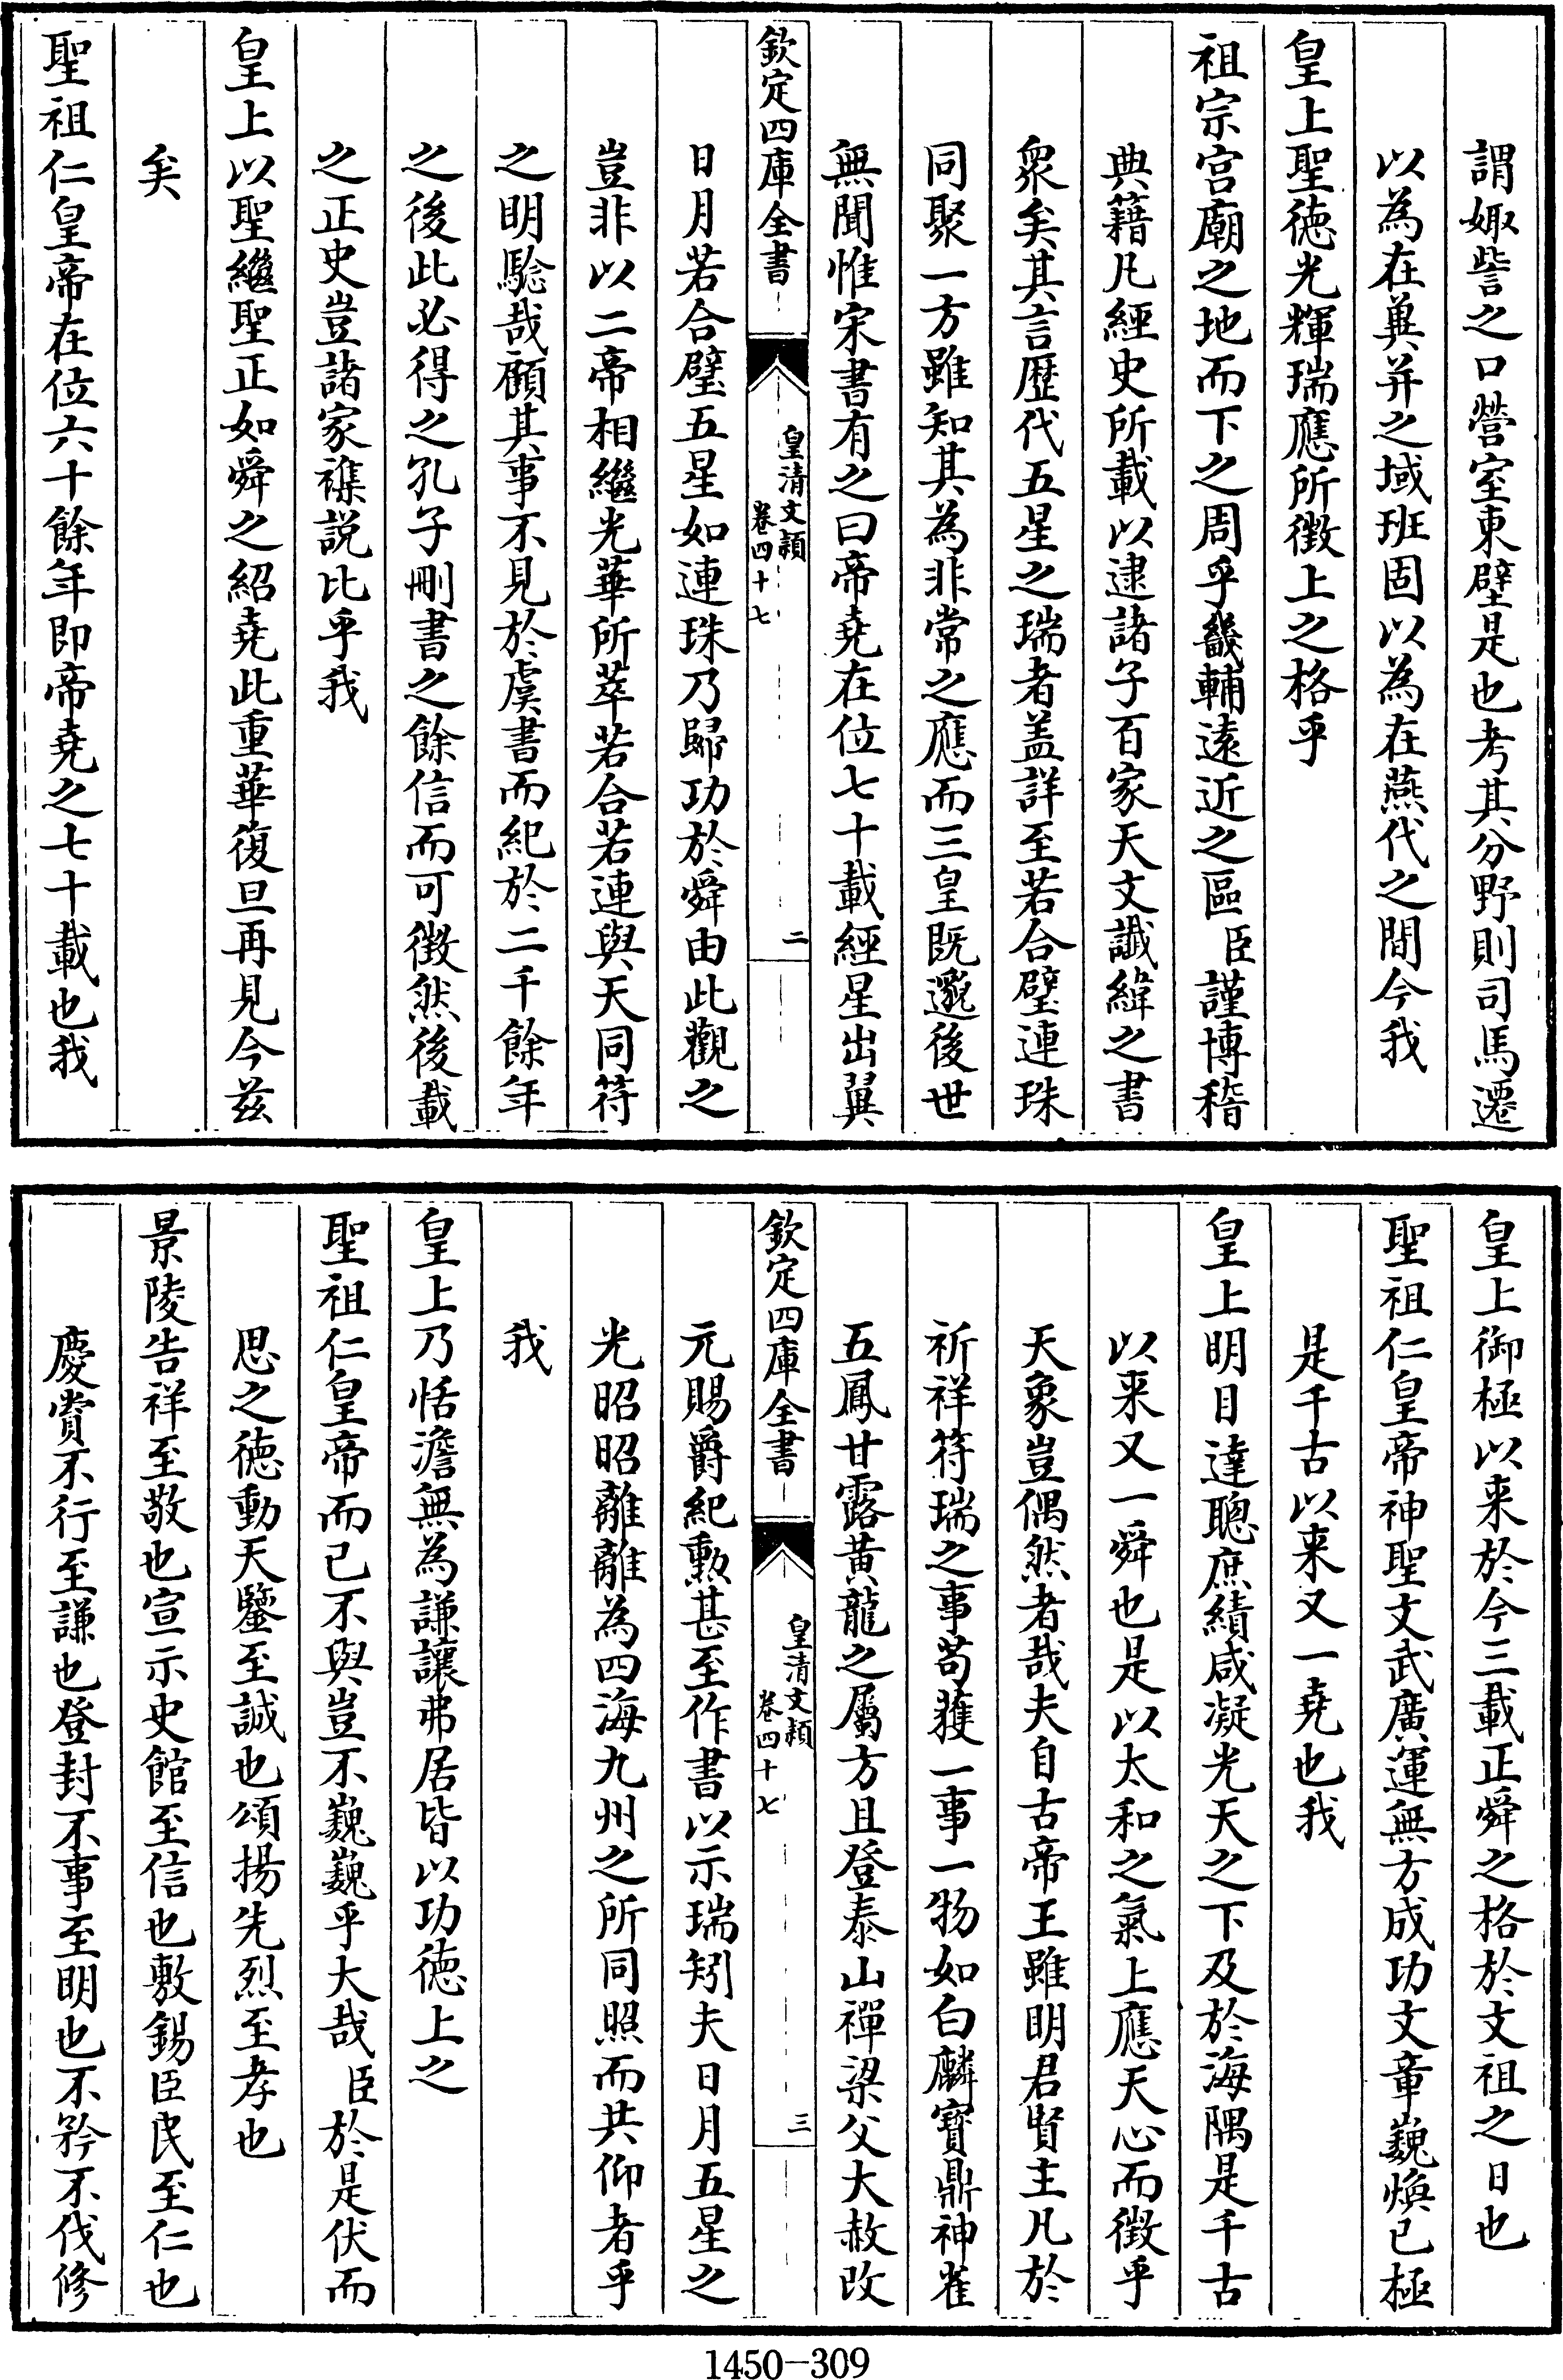 謂娵訾之口營室東壁是也考其分野則司馬遷
以為在冀并之域班固以為在燕代之間今我
皇上聖徳光輝瑞應所徴上之格乎
祖宗宫廟之地而下之周乎畿輔逺近之區臣謹博稽
典籍凡經史所載以逮諸子百家天文讖緯之書
衆矣其言歴代五星之瑞者盖詳至若合璧連珠
同聚一方雖知其為非常之應而三皇既邈後世
無聞惟宋書有之曰帝堯在位七十載經星出翼
欽定四庫全書
皇清文穎
卷四十七
二
日月若合璧五星如連珠乃歸功於舜由此觀之
豈非以二帝相繼光華所萃若合若連與天同符
之明騐哉顧其事不見於虞書而紀於二千餘年
之後此必得之孔子刪書之餘信而可徴然後載
之正史豈諸家襍説比乎我
皇上以聖繼聖正如舜之紹堯此重華復旦再見今兹
矣
聖祖仁皇帝在位六十餘年即帝堯之七十載也我
皇上御極以来於今三載正舜之格於文祖之日也
聖祖仁皇帝神聖文武廣運無方成功文章巍煥已極
是千古以来又一堯也我
皇上明目達聰庶績咸凝光天之下及於海隅是千古
以来又一舜也是以太和之氣上應天心而徴乎
天象豈偶然者哉夫自古帝王雖明君賢主凡於
祈祥符瑞之事苟獲一事一物如白麟寳鼎神雀
五鳳甘露黄龍之屬方且登泰山禪梁父大赦改
欽定四庫全書
皇清文穎
卷四十七
三
元賜爵紀勲甚至作書以示瑞矧夫日月五星之
光昭昭離離為四海九州之所同照而共仰者乎
我
皇上乃恬澹無為謙讓弗居皆以功徳上之
聖祖仁皇帝而已不與豈不巍巍乎大哉臣於是伏而
思之徳動天鑒至誠也頌揚先烈至孝也
景陵告祥至敬也宣示史館至信也敷錫臣民至仁也
慶賞不行至謙也登封不事至明也不矜不伐修
1450-309